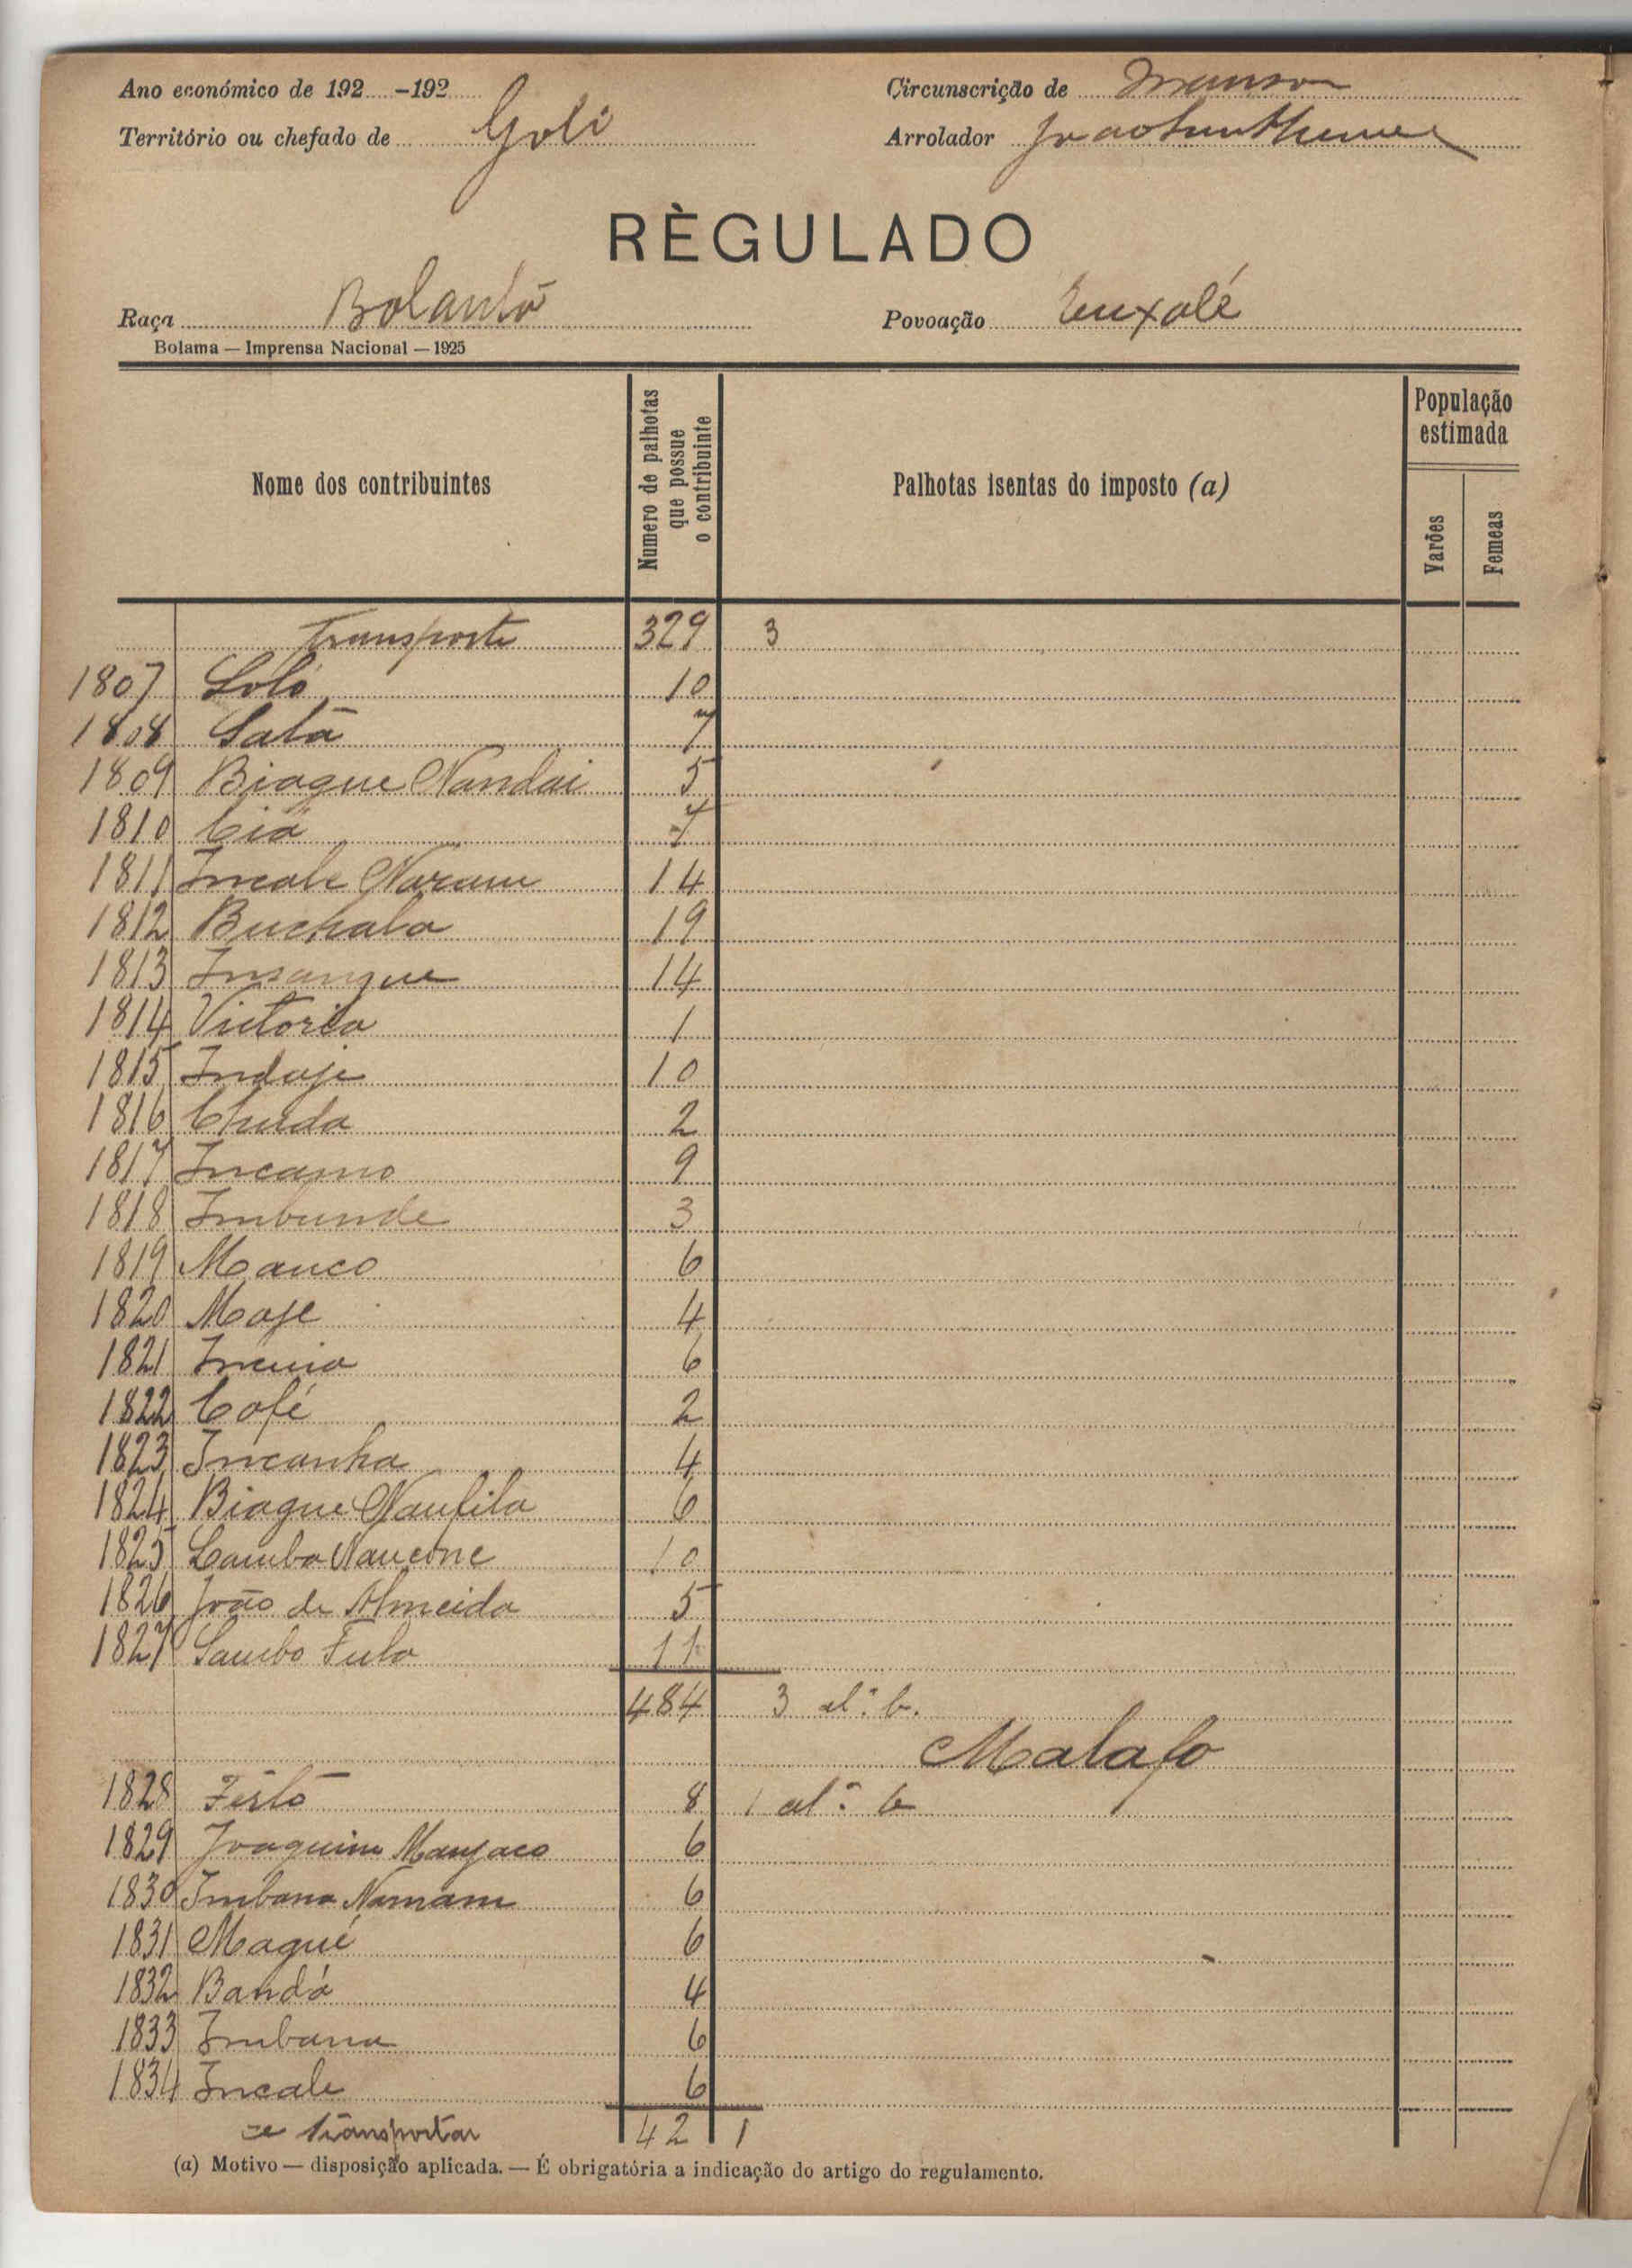 Ano económico de 192 -192
Circunscrição de Mansoa
Território ou chefado de Goli
Arrolador
RÈGULADO
Raça Bolanta
Povoação Enxalé
Bolama — Imprensa Nacional — 1925
Nome dos contribuintes
Numero de palhotas que possue o contribuinte
Palhotas isentas do imposto (a)
População estimada
Varões
Femeas
Transporte 329 3
1807 Loló 10
1808 Satā 7
1809 Biague Nandai 5
1810 Ciā 7
1811 Incale Naram 14
1812 Buchala 19
1813 Insangue 14
1814 Victoria 1
1815 Indaje 10
1816 Chuda 2
1817 Incamo 9
1818 Imbunde 3
1819 Manco 6
1820 Maje 4
1821 6
1822 Cofé 2
1823 Incanha 4
1824 Biague Naufila 6
1825 Lamba Naucone 10
1826 João de Almeida 5
1827 Sambo Fula 11
484 3 al.ª b.
Malafo
1828 8 1 al.ª b
1829 Joaquim Manjaco 6
1830 Imbana Namam 6
1831 Magué 6
1832 Bandá 4
1833 Imbana 6
1834 Incale 6
a transportar 42 1
(a) Motivo — disposição aplicada. — É obrigatória a indicação do artigo do regulamento.